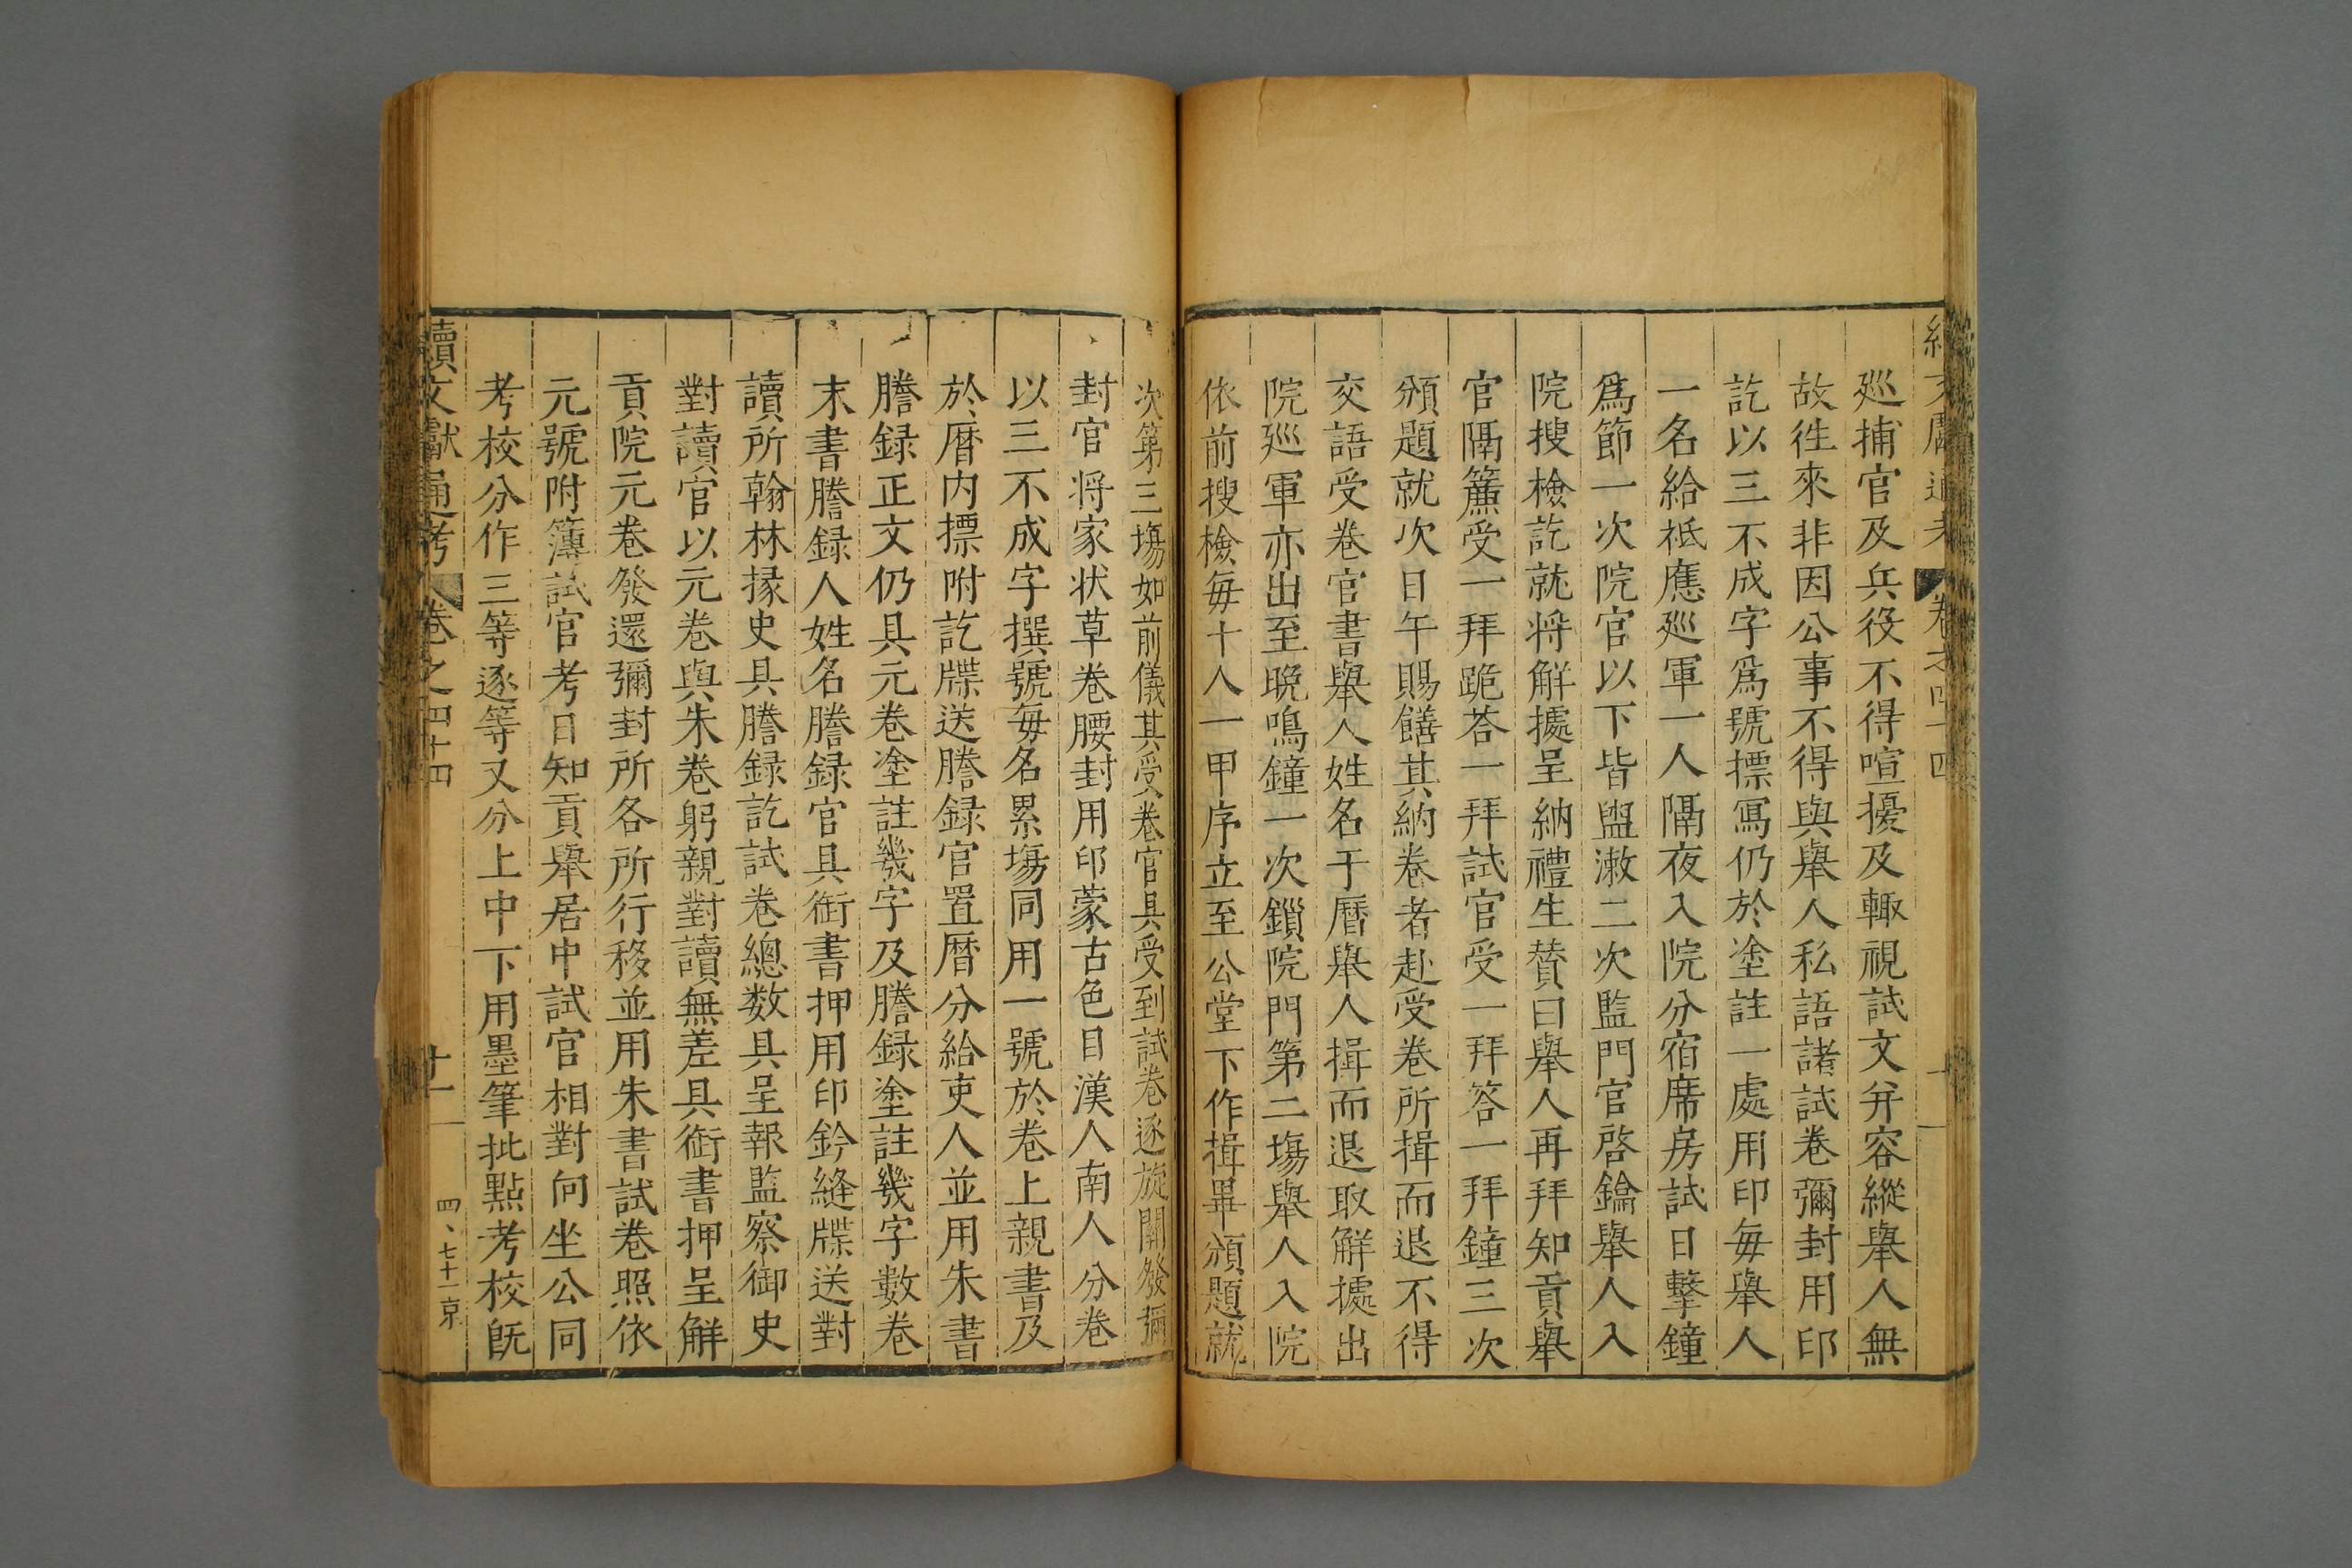 巡捕官及兵役不得喧擾及輙視試文并容縱舉人無
故徃來非因公事不得與舉人私語諸試卷彌封用印
訖以三不成字爲號摽寫仍於塗註一處用印每舉人
一名給祗應廵軍一人隔夜入院分宿席房試日擊鐘
爲節一次院官以下皆盥漱二次監門官啓鑰舉人入
院搜檢訖就将觧㨿呈納禮生贊曰舉人再拜知貢舉
官隔簾受一拜跪荅一拜試官受一拜答一拜鐘三次
頒題就次日午賜饍其納卷者赴受卷所揖而退不得
交語受卷官書舉人姓名于曆舉人揖而退取觧㨿出
院廵軍亦出至晩鳴鐘一次鎖院門第二塲舉人入院
依前搜檢每十人一甲序立至公堂下作揖畢頒題就
次第三塲如前儀其受卷官具受到試卷逐旋關發彌
封官将家状草卷腰封用印蒙古色目漢人南人分卷
以三不成字撰號每名累塲同用一號於卷上親書及
於曆内摽附訖牒送謄録官置曆分給吏人並用朱書
謄録正文仍具元卷塗註幾字及謄録塗註幾字數卷
末書謄録人姓名謄録官具銜書押用印鈐縫牒送對
讀所翰林掾史具謄録訖試卷總数具呈報監察御史
對讀官以元卷與朱卷躬親對讀無差具銜書押呈觧
貢院元卷發還彌封所各所行移並用朱書試卷照依
元號附簿試官考日知貢舉居中試官相對向坐公同
考校分作三等逐等又分上中下用墨筆批點考校既
續文獻通考 卷之四十四 十一 四、七十一 京